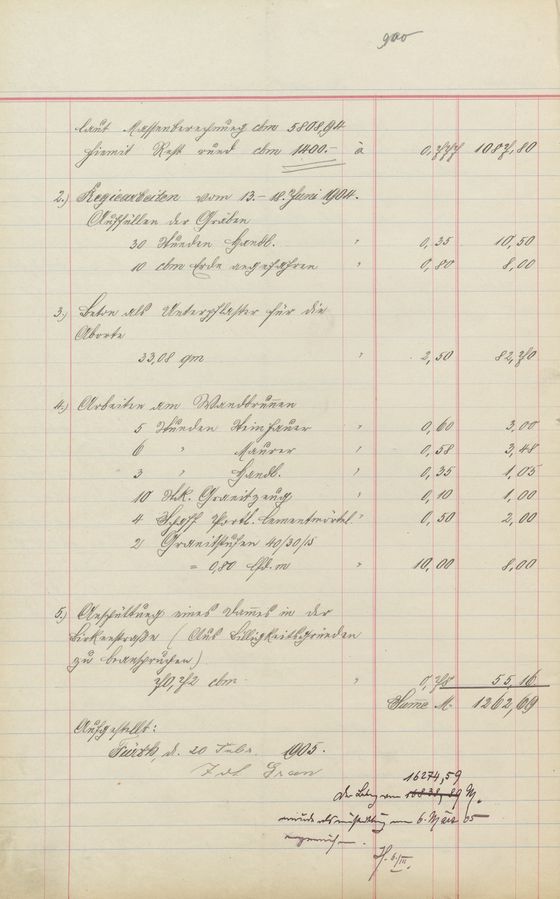 900
laut Massenberechnung cbm 5808,94
hiemit Rest rund cbm 1400.- à 0,777 1087,80
2.) Regiearbeiten vom 13.- 18. Juni 1904.
Auffüllen der Gräben
30 Stunden Handl. " 0,35 10,50
10 cbm Erde angefahren " 0,80 8,00
3.) Beton als Unterpflaster für die
Aborte
33,08 qm " 2,50 82,70
4.) Arbeiten am Wandbrunnen
5 Stunden Steinhauer " 0,60 3,00
6 " Maurer " 0,58 3,48
3 " Handl. " 0,35 1,05
10 Stk. Granitzeug " 0,10 1,00
4 Schaff Portl. Cementmörtel " 0,50 2,00
2 Granitstufen 40/30/15
= 0,80 lfd. m " 10,00 8,00
5.) Anschüttung eines Dammes in der
Birkenstraße (Aus Billigkeitsgründen
zu beanspruchen)
" 55,16
Summe M. 1262,69
Aufgestellt:
Fürth, d. 20 Febr. 1905.
16274,59
Der Betrag von 16838,89 M.
wurde als am 6. März 05